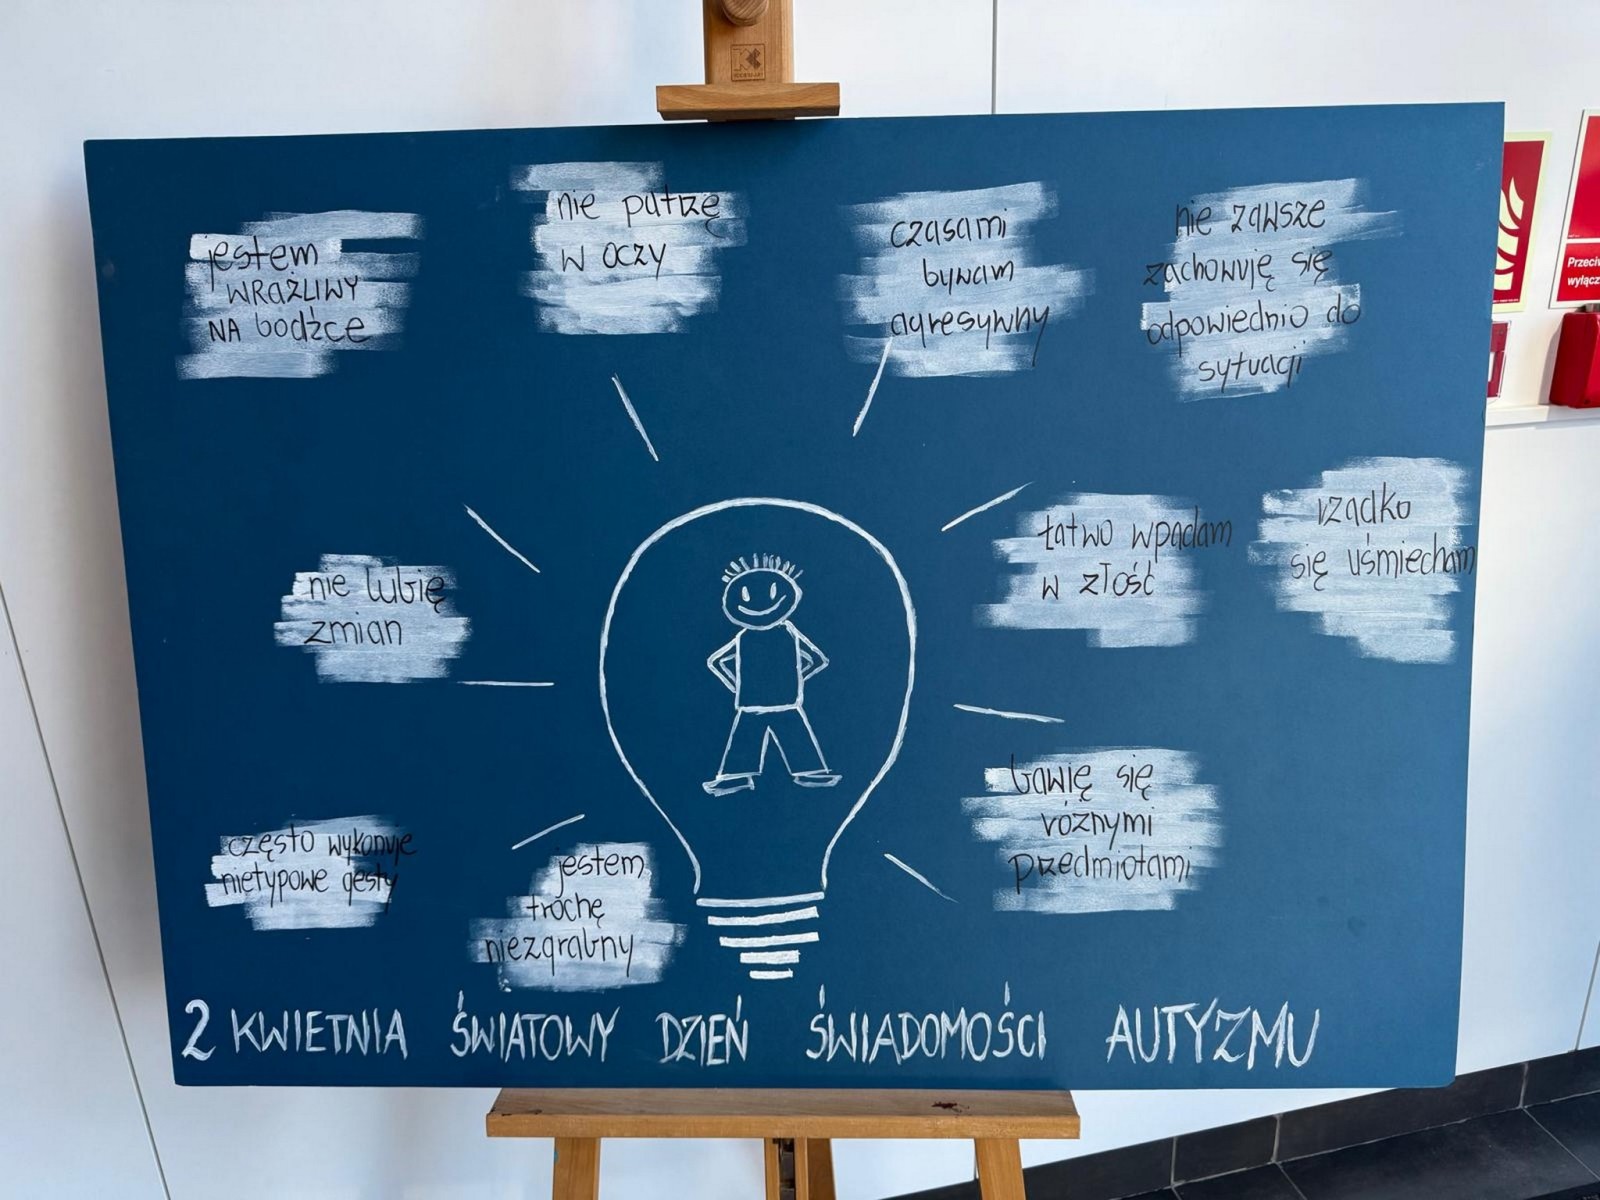 jestem
WRAŻLIWY
NA bodźce
nie patrzę
w oczy
czasami
bywam
agresywny
nie zawsze
zachowuję się
odpowiednio do
sytuacji
łatwo wpadam
w złość
rzadko
się uśmiecham
nie lubię
zmian
bawię się
różnymi
przedmiotami
często wykonuje
nietypowe gesty
jestem
trochę
niezgrabny
2 KWIETNIA ŚWIATOWY DZIEŃ ŚWIADOMOŚCI AUTYZMU